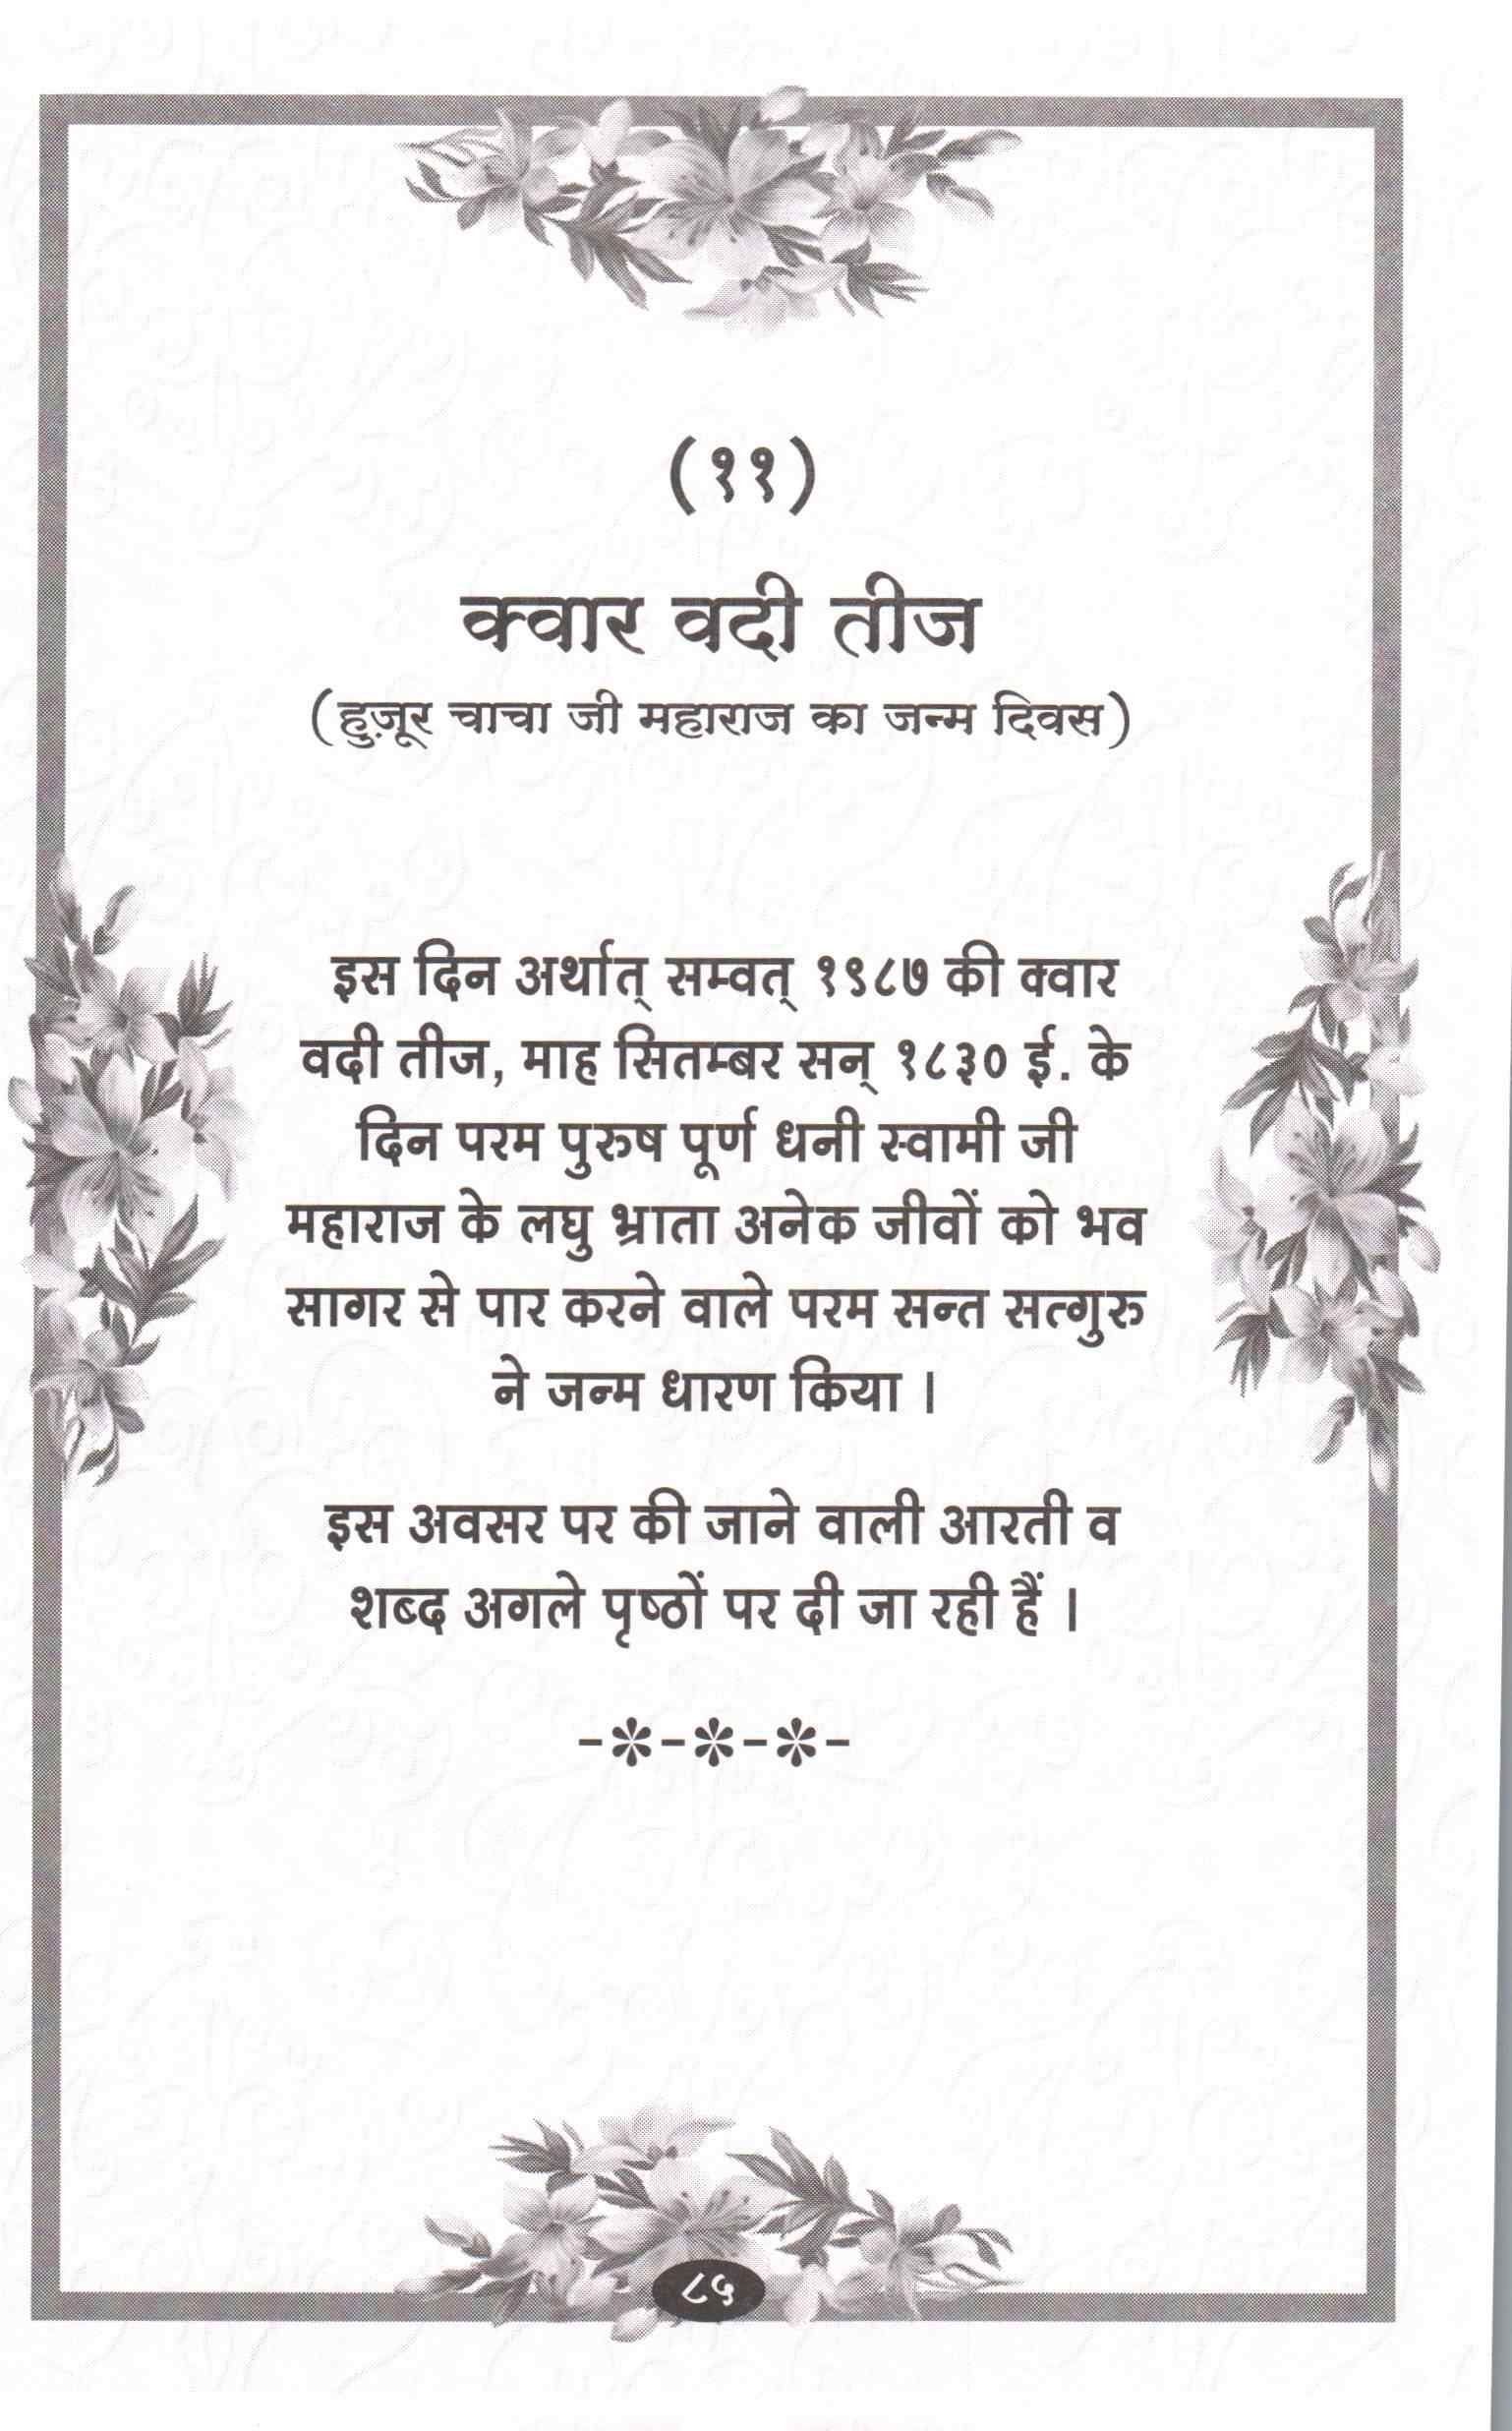 (११)
क्वार वदी तीज
(हुज़ूर चाचा जी महाराज का जन्म दिवस)
इस दिन अर्थात् सम्वत् १९८७ की क्वार
वदी तीज, माह सितम्बर सन् १८३० ई. के
दिन परम पुरुष पूर्ण धनी स्वामी जी
महाराज के लघु भ्राता अनेक जीवों को भव
सागर से पार करने वाले परम सन्त सत्गुरु
ने जन्म धारण किया ।
इस अवसर पर की जाने वाली आरती व
शब्द अगले पृष्ठों पर दी जा रही हैं ।
-*-*-*-
८५